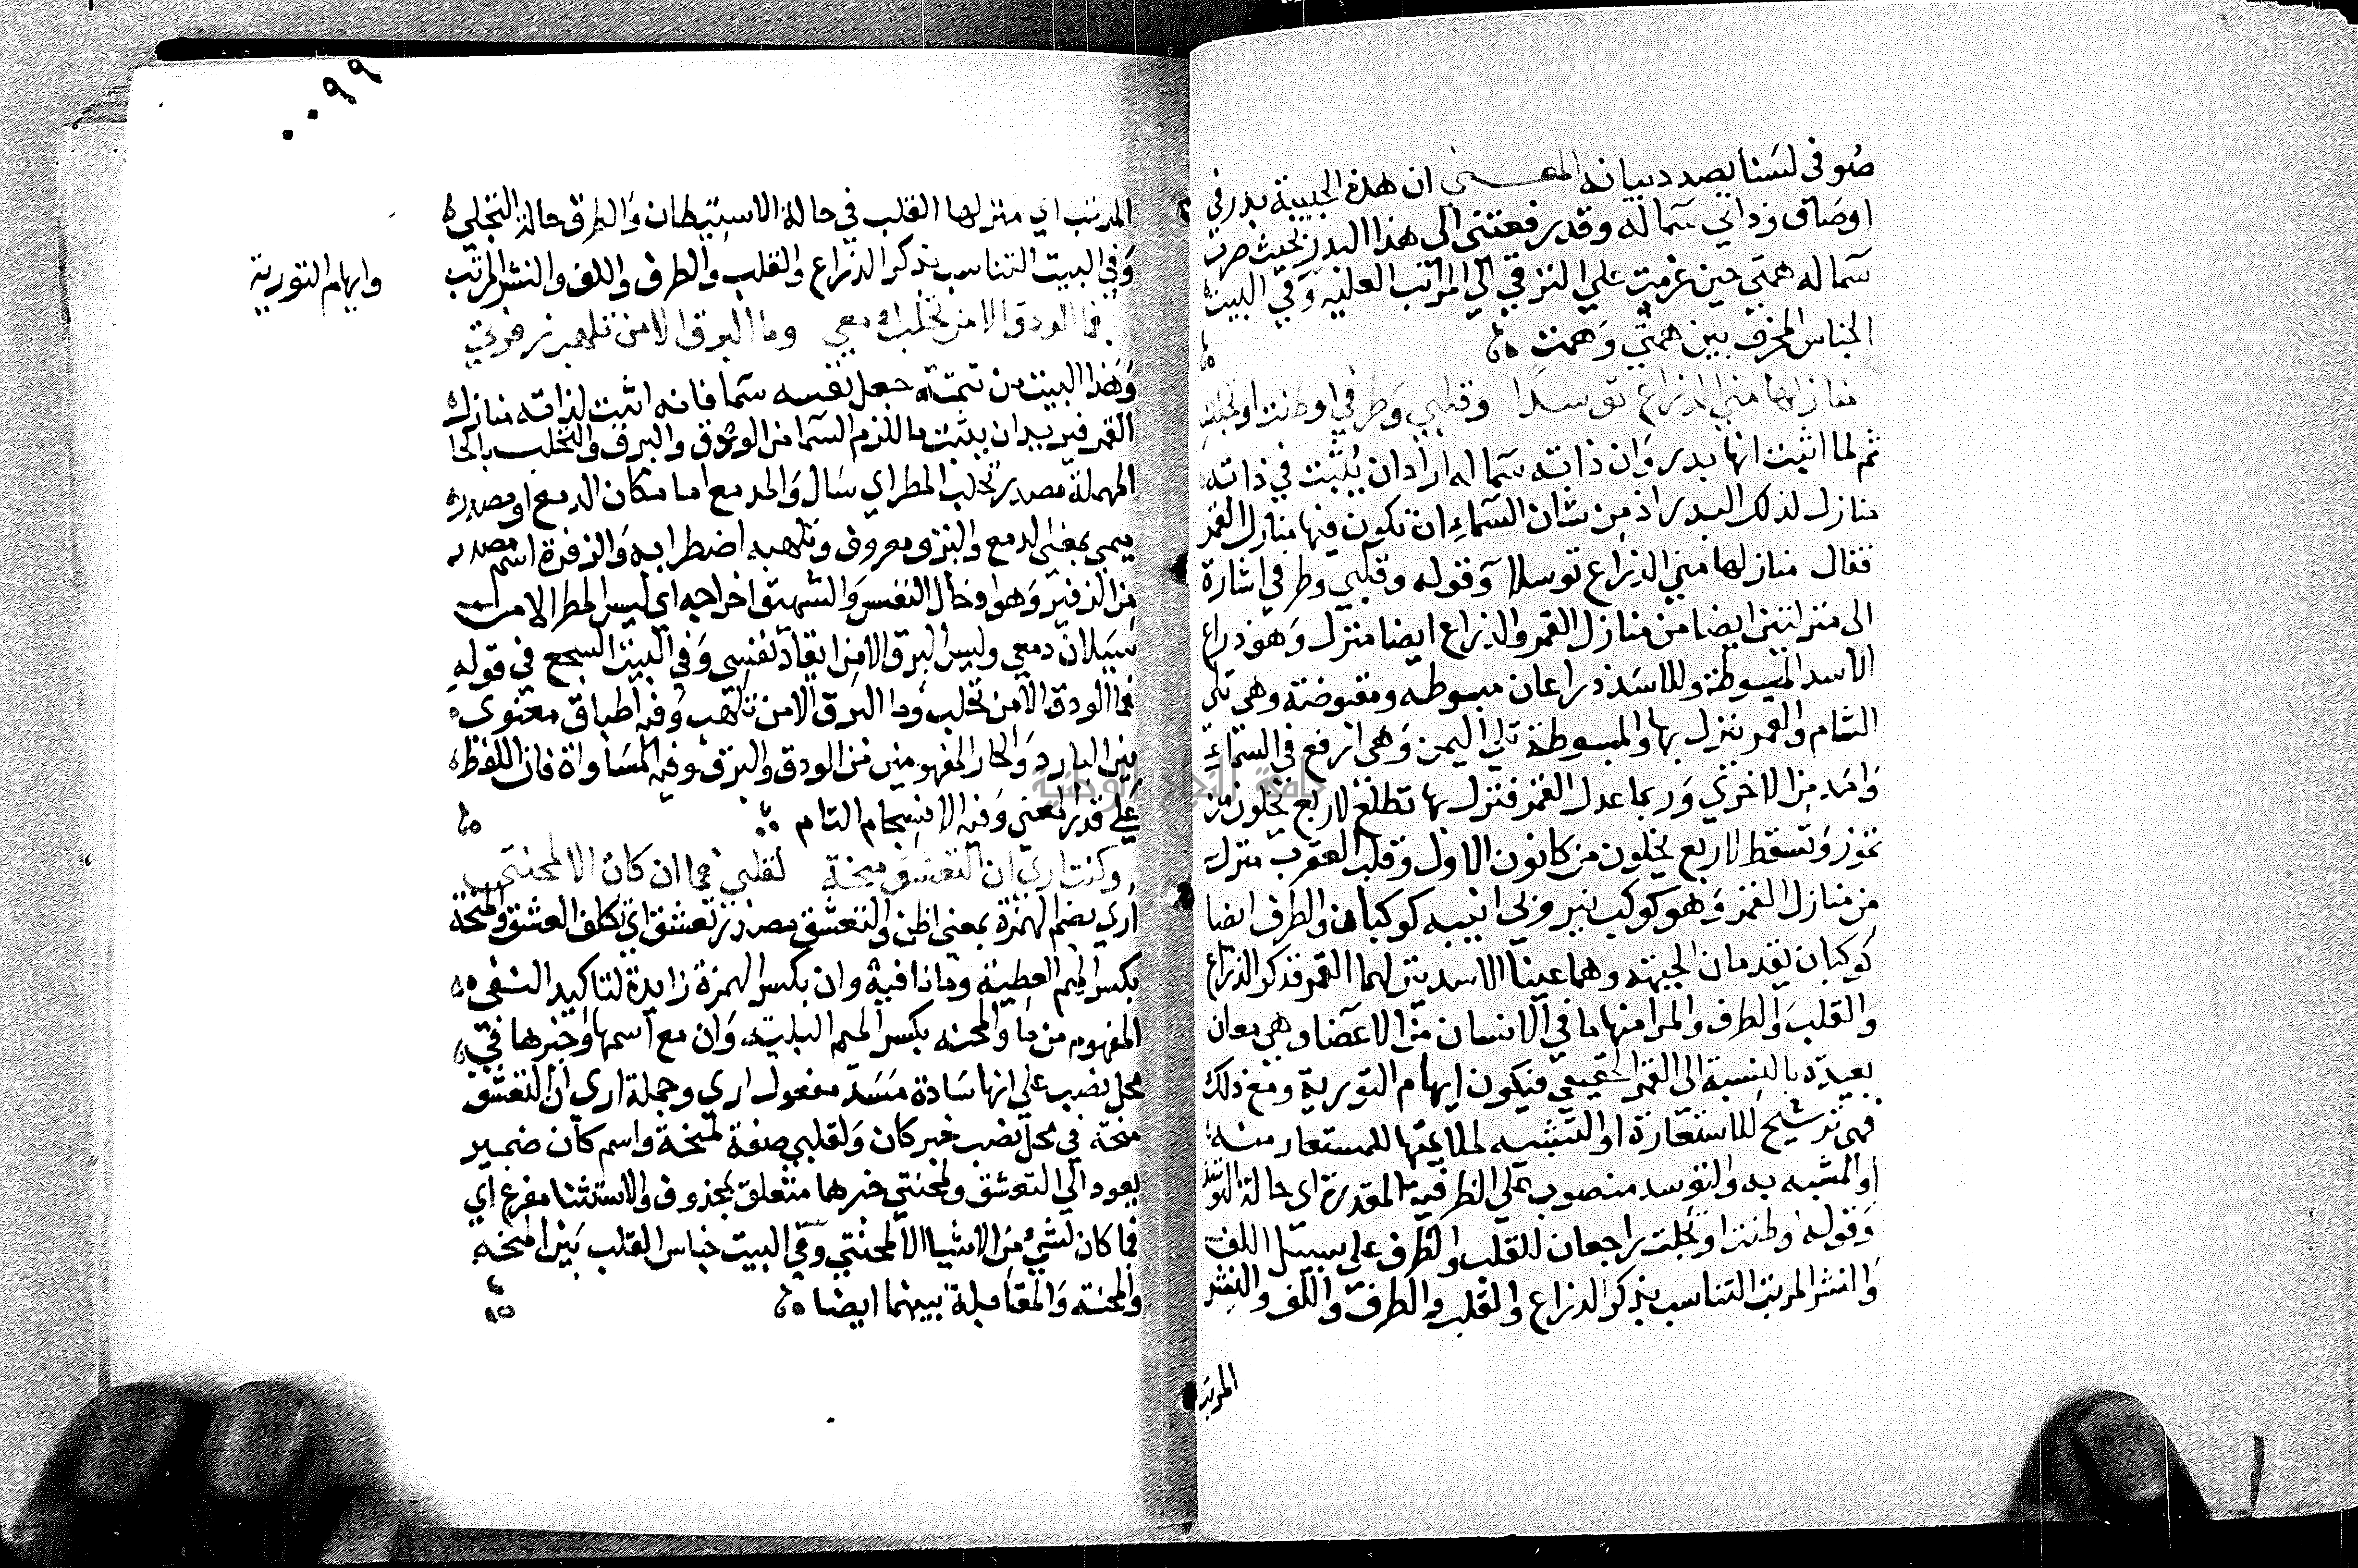 صُوفى لسَنا بصدد بيانه المعنى ان هذه الحبيبة بدر في
اوصَاف وذاتي سَما له وقد رفعتنى الى هذا البدر بحيث صرت
سَما له همتي حين عزمت علي الترقي الي المراتب العليه وَفي البيت
الجناس المحرف بين همتي وَهمت
منازلها مني الذراع توسدًا وقلبي وَطرفي اوطنت او تجلت
ثم لما اثبت انها بدر وَان ذاته سَما له اراد ان يُثبت في ذاته
منازل لذلك البدر اذ مِن شان السَّماءِ ان تكون فيها منازل القمر
فقال منازلها مني الذراع توسدا وَقوله وقلبي وطرفي اشارة
الى منزلتين ايضا من منازل القمر والذراع ايضا منزل وَهو ذراع
الاسد المبسوطة وللاسَد ذراعان مبسوطه ومقبوضة وهى تلي
الشام والقمر ينزل بها والمبسوطة تلي اليمن وَهى ارفع في السَّماءِ
وَامَد مِن الاخرَي وَربما عدل القمر فنزل بها تطلع لاربع يخلون من
تموز وَتسقط لاربع يخلون من كانون الاول وقلب العقرب منزل
من منازل القمر وَهو كوكب نير وبجانبيه كوكبان والطرف ايضا
كوكبان يقدمان الجبهة وهما عينا الاسد ينزلهما القمر فذكر الذراع
والقلبَ وَالطرف والمراد منها ما في الانسان من الاعضا وهي معان
بعيدة بالنسبة الى القمر الحقيقي فيكون ايهام التورية ومع ذلك
فهى ترشيح للاستعَارة او التشبيه لملايمتها للمستعار منه
او المشبه به والتوسد منصوب على الظرفية المقدرة اى حالة التوسد
وَقوله اوطنت او تجلت راجعان للقلب والطرف على سبيل اللف
وَالنشر المرتب التناسب بذكر الذراع والقلب والطرف واللف والنشر
المرتب
٠٠٩٩
المرتب اي منزلها القلب في حالة الاستيطان وَالطرف حالة التجلي
وَفي البيت التناسب بذكر الذراع والقلب والطرف واللف والنشر المرتب
وايهام التورية
فما الودق الا من تحلب مدمعي وما البرق الا من تلهب زفرتي
وَهذا البيت من تتمة جعل نفسه سَما فانه اثبت لذاته منازل
القمر فيريد ان يثبت ما لازم السما من الودق والبرق والتحلب بالحا
المهملة مصدر تحلب المطر اي سَال وَالمدمع اما مكان الدمع او مصدر
ميمي بمعنى الدمع والبرق معروف وتلهبه اضطرابه وَالزفرة اسم مصدر
من الزفير وَهو ادخال النفس وَالشهيق اخراجه اي ليس المطر الا من
سَيَلان دمعي وليس البرق الا من ايقاد نفسِى وَفي البيت السجع في قوله
فما الودق الا من تحلب وما البرق الا من تلهب وَفيه اطباق معنوي
بين البارد وَالحار المفهومين من الودق والبرق وفيه المسَاواة فان اللفظ
عَلي قدر المعني وَفيه الانسجام التام
وكنت اري ان التعشق منحة لقلبي فما ان كان الا لمحنتي
اُري بضم الهمزة بمعنى اظن والتعشق مصدر تعشق اي تكلف العشق والمنحة
بكسر الميم العطية وما نافية وان بكسر الهمزة زايدة لتاكيد النفى
المفهوم من ما والمحنه بكسر الميم البلية، وَان مع اسمها وَخبرها في
محل نصب علي انها سَادة مَسَدّ مفعول اري وجملة اري ان التعشق
منحة في محل نصب خبر كان وَلقلبي صفة لمنحة واسم كان ضمير
يعود الي التعشق ولمحنتي خبرها متعلق بمحذوف والاستثنا مفرغ اي
فما كان لشيء من الاشيا الا لمحنتي وَفي البيت جناس القلب بَين المنحه
والمحنه وَالمقابلة بينهما ايضا